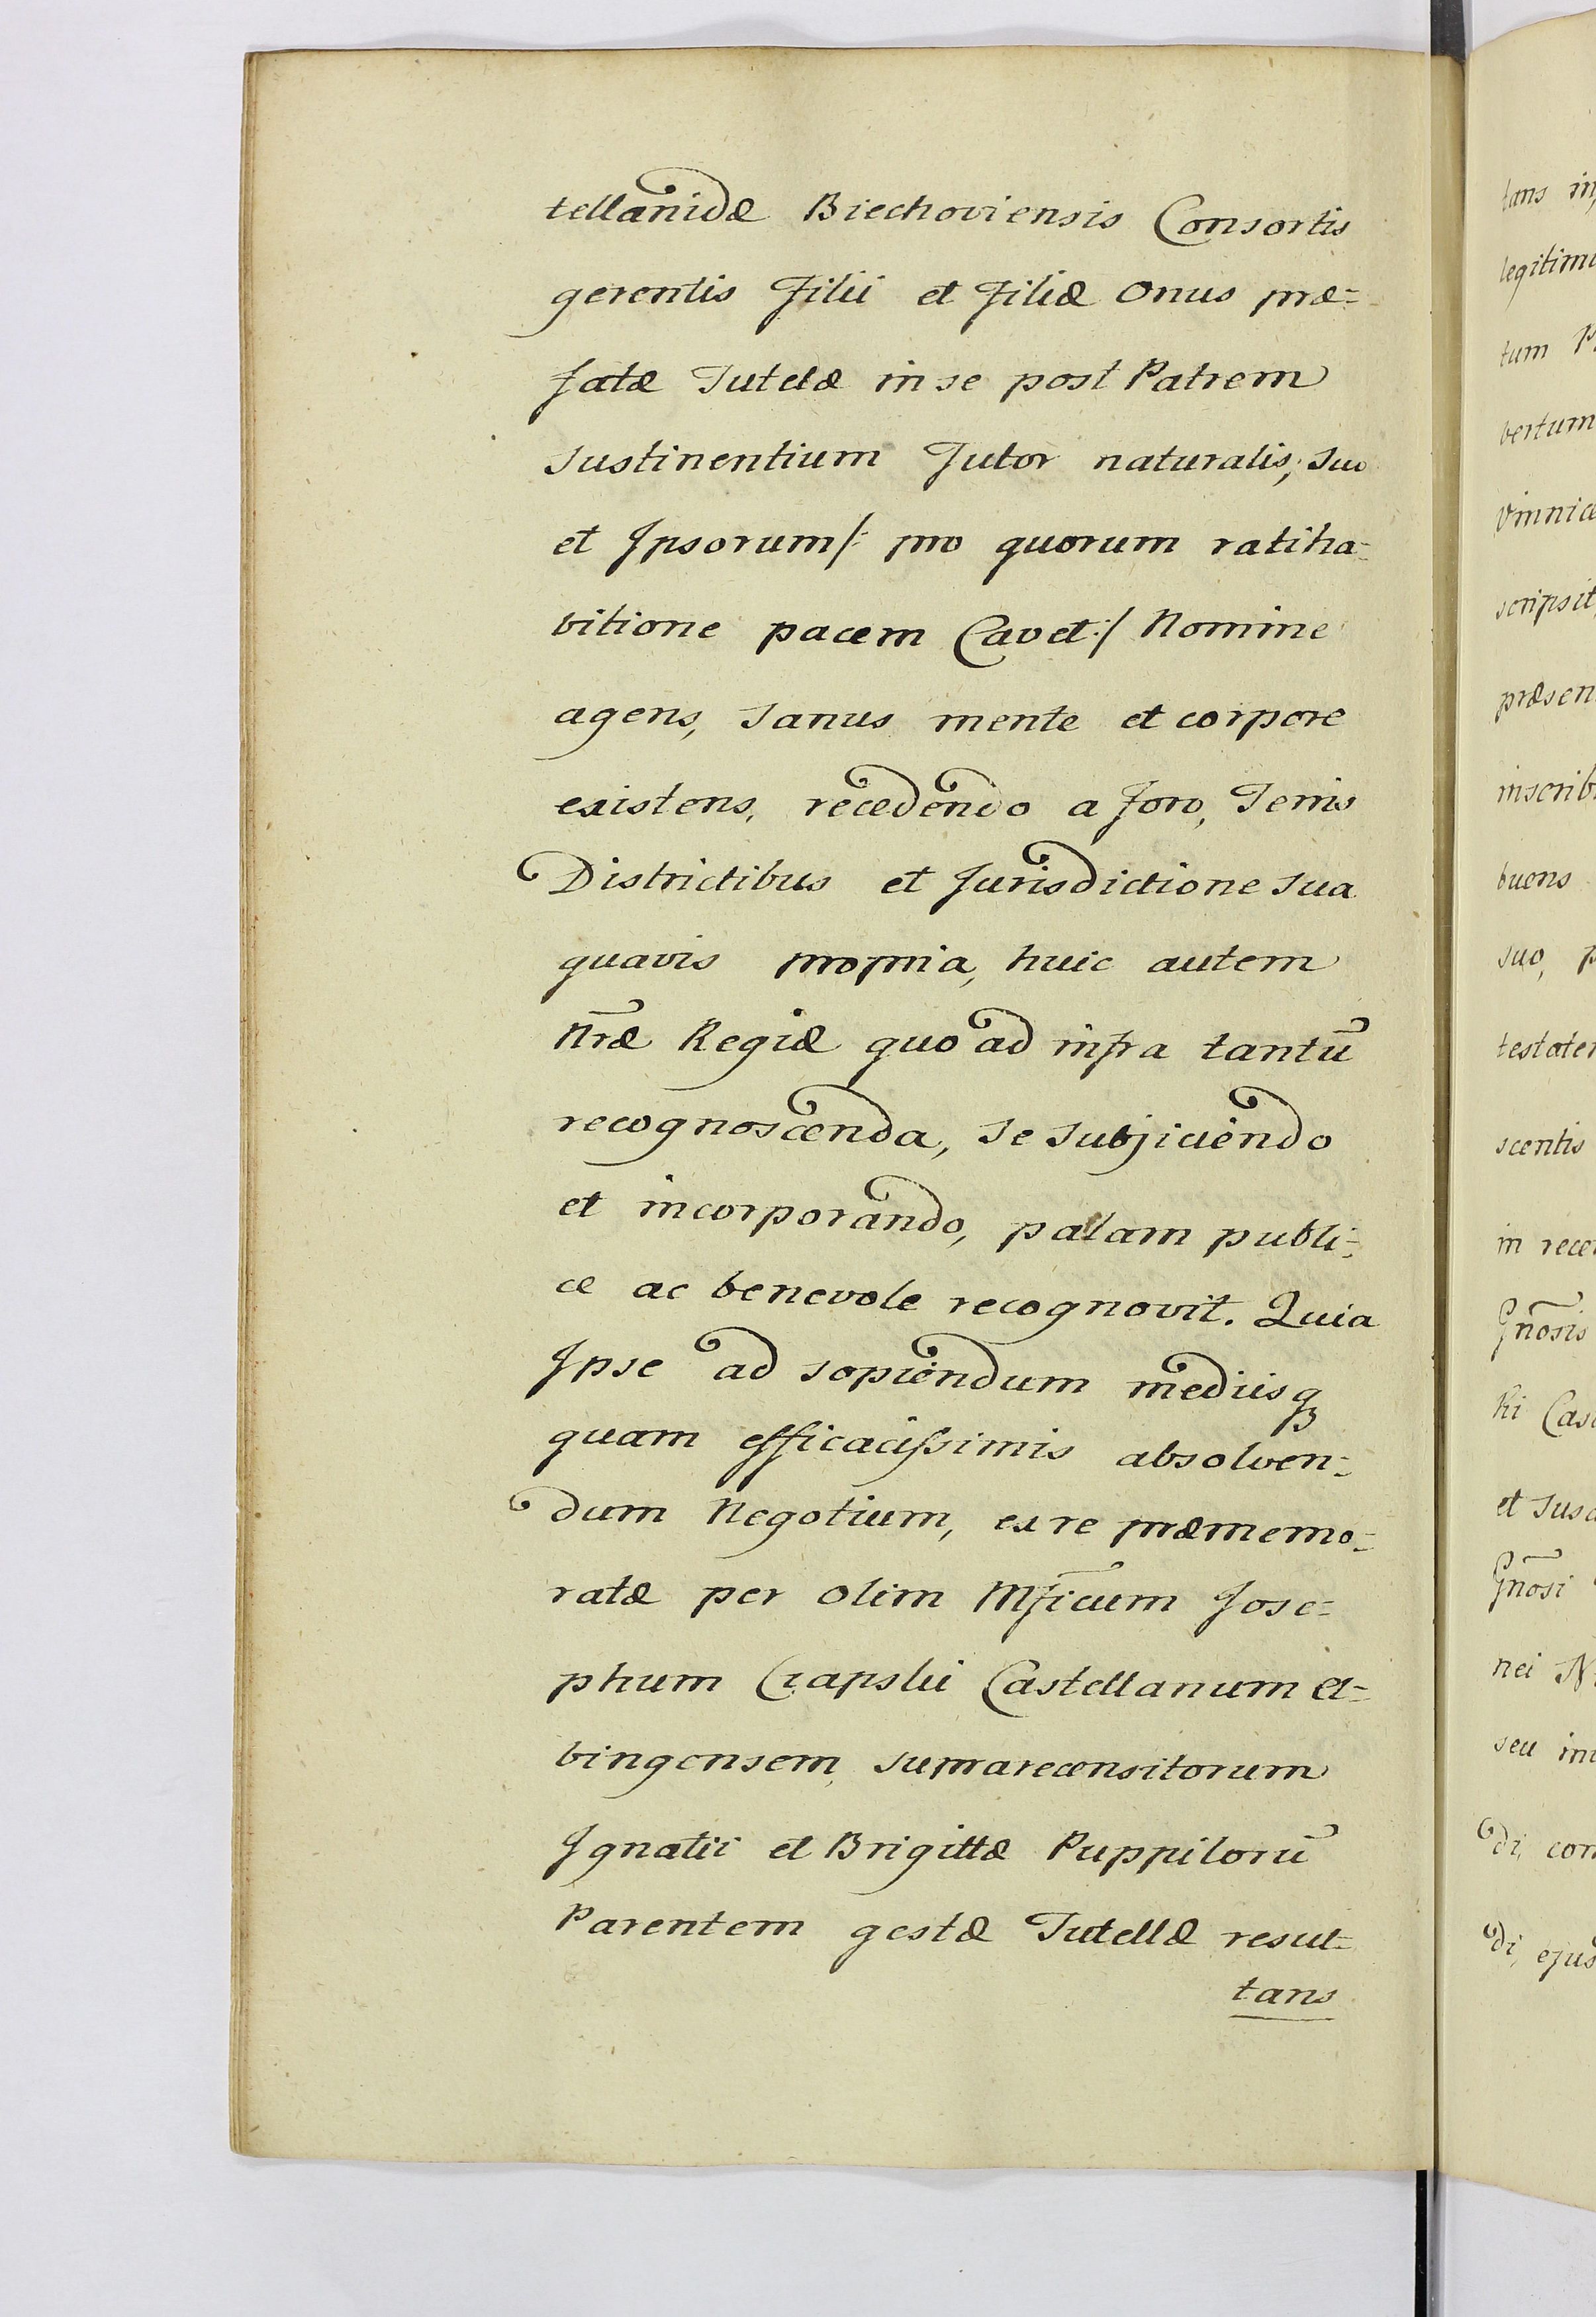 tellanidæ Biechoviensis Consortis
gerentis Filii et Filiæ onus præ=
fatæ Tutelæ in se post Patrem
sustinentium Tutor naturalis, suo
et Ipsorum /: pro quorum ratiha=
bitione pacem Cavet :/ Nomine
agens, sanus mente et corpore
existens, recedendo a foro, Terris
Districtibus et Jurisdictione sua
quavis propria, huic autem
Nr̄æ Regiæ quo ad infra tantū
recognoscenda, se subjiciendo
et incorporando, palam publi=
ce ac benevole recognovit. Quia
Ipse ad sopiendum mediisqꝫ
quam efficacissimis absolven=
dum Negotium, ex re præmemo=
ratæ per olim Mficum Jose=
phum Czapski Castellanum El=
bingensem, suprarecensitorum
Ignatii et Brigittæ Puppilorū
Parentem gestæ Tutellæ resul=
tans
tans
legitim
tum
bertum
Vinnicæ
scripsit
præsen
inscrib
buens
suo, p
testater
scentis
in rece
Gn̄osis
ki Cas
et sus
Gn̄osi
nei N
seu in
di, con
di, ejus